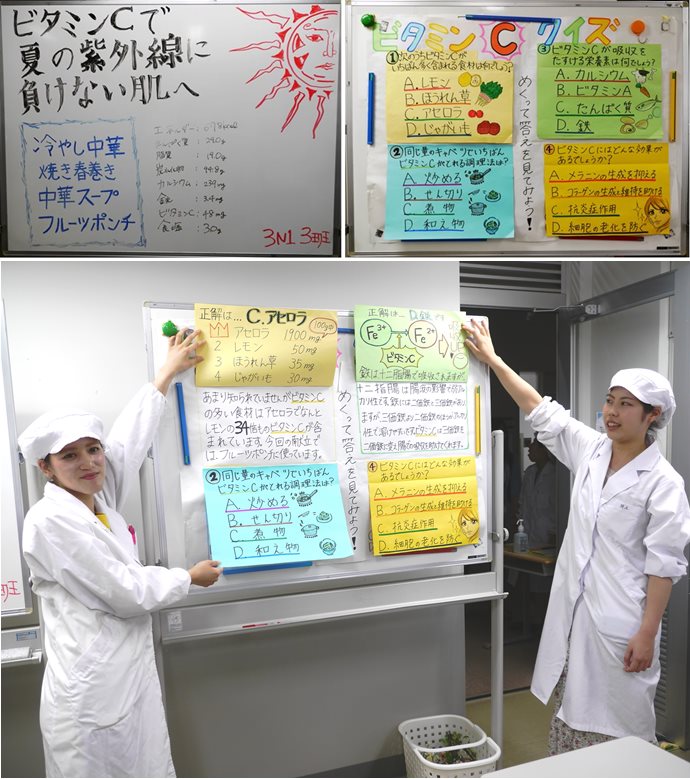 ビタミンCで
夏の紫外線に
負けない肌へ
冷やし中華
焼き春巻き
中華スープ
フルーツポンチ
エネルギー:
たんぱく質:
脂質: 19.0g
炭水化物:
カルシウム: 239mg
鉄: 3.4mg
ビタミンC: 48mg
食塩: 3.0g
3N1 3班
ビタミンC クイズ
①次のうちビタミンCが
いちばん多く含まれる食材は何でしょう?
A.レモン
B.ほうれん草
C.アセロラ
D.じゃがいも
②同じ量のキャベツでいちばん
ビタミンCがとれる調理法は?
A.炒める
B.せん切り
C.煮物
D.和え物
めくって答えを見てみよう!
③ビタミンCが吸収を
たすける栄養素は何でしょう?
A.カルシウム
B.ビタミンA
C.たんぱく質
D.鉄
④ビタミンCにはどんな効果が
あるでしょうか?
A.メラニンの生成を抑える
B.コラーゲンの生成と維持を助ける
C.抗炎症作用
D.細胞の老化を防ぐ
正解は… C.アセロラ
100g中
アセロラ 1900mg
2 レモン 50mg
3 ほうれん草 35mg
4 じゃがいも 30mg
あまり知られていませんがビタミンC
の多い食材はアセロラでなんと
レモンの34倍ものビタミンCが含
まれています。今回の献立で
は、フルーツポンチに使っています。
②同じ量のキャベツでいちばん
ビタミンCがとれる調理法は?
A.炒める
B.せん切り
C.煮物
D.和え物
めくって答えを見てみよう!
正解は… D.鉄
Fe3+
Fe2+
ビタミンC
鉄は十二指腸で吸収されますが、
十二指腸は腸液の影響で弱アル
カリ性です。鉄には二価鉄と三価鉄があり
ますが三価鉄より二価鉄のほうがアルカリ
性で溶けやすいためビタミンCは三価鉄を
二価鉄に変え腸での吸収を助けてくれます。
④ビタミンCにはどんな効果が
あるでしょうか?
A.メラニンの生成を抑える
B.コラーゲンの生成と維持を助ける
C.抗炎症作用
D.細胞の老化を防ぐ
班